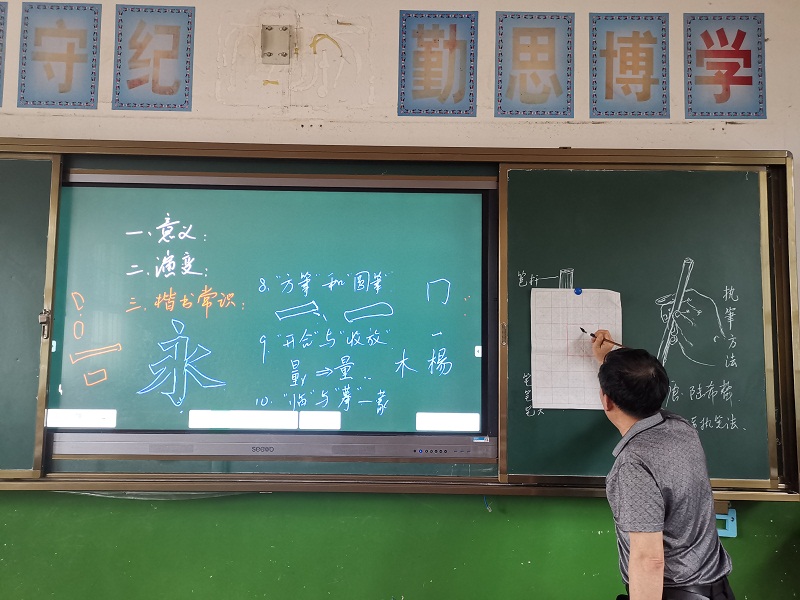 守 纪 勤 思 博 学
一、意义：
二、演变：
三、楷书常识：
永
8、"方笔"和"圆笔"
9、"开合"与"收放"
量 ⇒ 量
木 楊
10、"临"与"摹"
seewo
笔杆
笔
笔
笔尖
执筆方法
唐·陆希声
执笔法